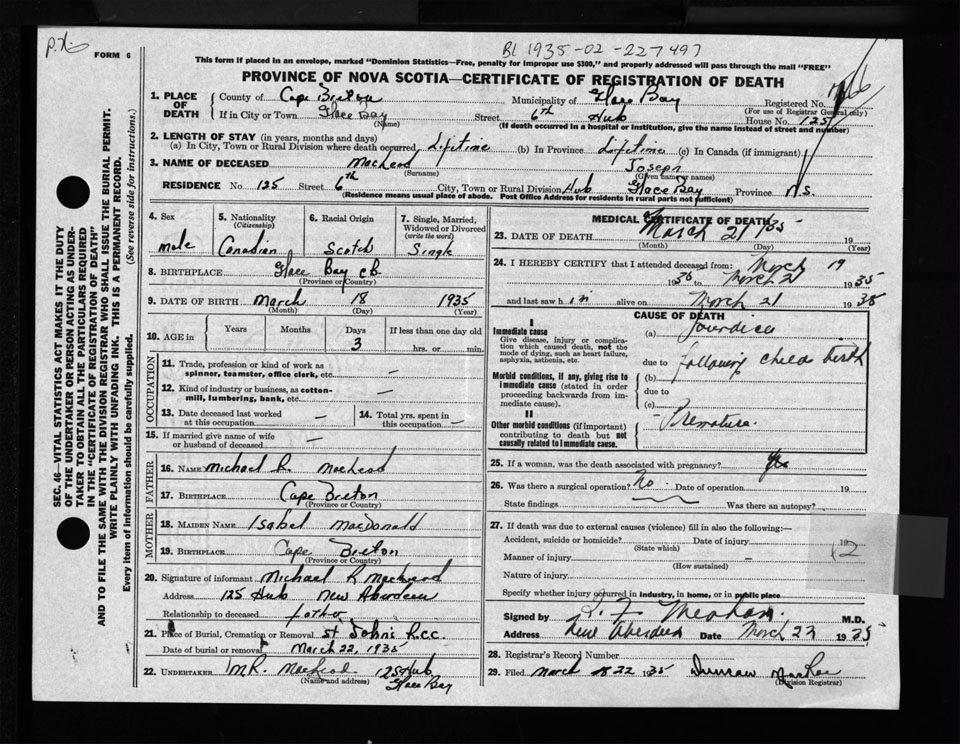 P.X.
FORM 6
BL 1935-02-227497
This form if placed in an envelope, marked "Dominion Statistics—Free, penalty for improper use $300," and properly addressed will pass through the mail "FREE"
PROVINCE OF NOVA SCOTIA—CERTIFICATE OF REGISTRATION OF DEATH
SEC. 46—VITAL STATISTICS ACT MAKES IT THE DUTY
OF THE UNDERTAKER OR PERSON ACTING AS UNDER-
TAKER TO OBTAIN ALL THE PARTICULARS REQUIRED
IN THE "CERTIFICATE OF REGISTRATION OF DEATH"
AND TO FILE THE SAME WITH THE DIVISION REGISTRAR WHO SHALL ISSUE THE BURIAL PERMIT.
WRITE PLAINLY WITH UNFADING INK. THIS IS A PERMANENT RECORD.
Every item of information should be carefully supplied. (See reverse side for instructions.)
1. PLACE OF DEATH
County of Cape Breton Municipality of Glace Bay Registered No. 
If in City or Town Glace Bay Street 6th Hub House No. 125
(Name) (For use of Registrar General only)
(If death occurred in a hospital or institution, give the name instead of street and number)
2. LENGTH OF STAY (in years, months and days)
(a) In City, Town or Rural Division where death occurred Lifetime (b) In Province Lifetime (c) In Canada (if immigrant)
3. NAME OF DECEASED MacLeod Joseph
(Surname) (Given name or names)
RESIDENCE No. 125 Street 6th City, Town or Rural Division Hub Glace Bay Province N.S.
(Residence means usual place of abode. Post Office Address for residents in rural parts not sufficient)
4. Sex male
5. Nationality (Citizenship) Canadian
6. Racial Origin Scotch
7. Single, Married, Widowed or Divorced (write the word) Single
8. BIRTHPLACE Glace Bay CB
(Province or Country)
9. DATE OF BIRTH March 18 1935
(Month) (Day) (Year)
10. AGE in Years Months Days 3 If less than one day old
hrs. or min.
OCCUPATION
11. Trade, profession or kind of work as
spinner, teamster, office clerk, etc. —
12. Kind of industry or business, as cotton-
mill, lumbering, bank, etc. —
13. Date deceased last worked
at this occupation —
14. Total yrs. spent in
this occupation —
15. If married give name of wife
or husband of deceased —
FATHER
16. NAME Michael R. MacLeod
17. BIRTHPLACE Cape Breton
(Province or Country)
MOTHER
18. MAIDEN NAME Isabel MacDonald
19. BIRTHPLACE Cape Breton
(Province or Country)
20. Signature of informant Michael R MacLeod
Address 125 Hub New Aberdeen
Relationship to deceased father
21. Place of Burial, Cremation or Removal St John's R.C.C.
Date of burial or removal March 22, 1935
22. UNDERTAKER M.R. MacLeod 125 Hub
(Name and address) Glace Bay
MEDICAL CERTIFICATE OF DEATH
23. DATE OF DEATH March 21 35 19
(Month) (Day) (Year)
24. I HEREBY CERTIFY that I attended deceased from: March 19
1935 to March 21 1935
and last saw him alive on March 21 1935
CAUSE OF DEATH
I
Immediate cause
Give disease, injury or complica-
tion which caused death, not the
mode of dying, such as heart failure,
asphyxia, asthenia, etc.
(a) Jaundice
due to following child birth
Morbid conditions, if any, giving rise to
immediate cause (stated in order
proceeding backwards from im-
mediate cause).
(b)
due to
(c)
II
Other morbid conditions (if important)
contributing to death but not
causally related to immediate cause.
Premature.
25. If a woman, was the death associated with pregnancy? yes
26. Was there a surgical operation? No. Date of operation 19
State findings Was there an autopsy?
27. If death was due to external causes (violence) fill in also the following:—
Accident, suicide or homicide? Date of injury 19
(State which)
Manner of injury
(How sustained)
Nature of injury
Specify whether injury occurred in industry, in home, or in public place
Signed by Meahan. M.D.
Address New Aberdeen Date March 22 1935
28. Registrar's Record Number
29. Filed March 22 1935
(Division Registrar)
12